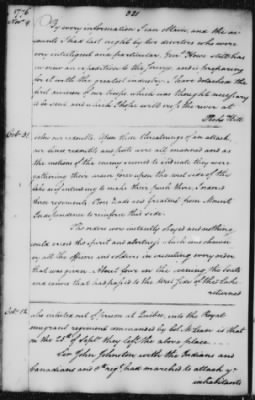 1776
Nov. 8
221
By every information I can obtain, and the accounts I had last night by two deserters who were
very intelligent and particular, Gen.l Howe still has
in view an expedition to the Jerseys, and is preparing
for it with the greatest industry. I have detached the
first division of our troops which was thought necessary
to be sent and which I hope will cross the river at
Peeks Kill
Oct. 31
under our redoubts. Upon these threatnings of an attack,
our lines redoubts and posts were all manned and as
the motions of the enemy seemed to indicate they were
gathering their main force upon the west side of the
lake & intending to make their push there, I ordered
three regiments from
Independence to reinforce this side.
The orders were instantly obeyed and nothing
could exceed the spirit and alertness which was shewn
by all the officers and soldiers in executing every order
that was given. About four in the evening the boats
and canoes that had passed to the west side of the lake
returned
Oct. 12
who enlisted out of prison at Quebec, into the Royal
emigrant regiment commanded by Col. McLean is that
on the 25th of Sept.r they left the above place
Sir John Johnston with the Indians and
Canadians and 8th reg.t had marched to attack ye
inhabitants